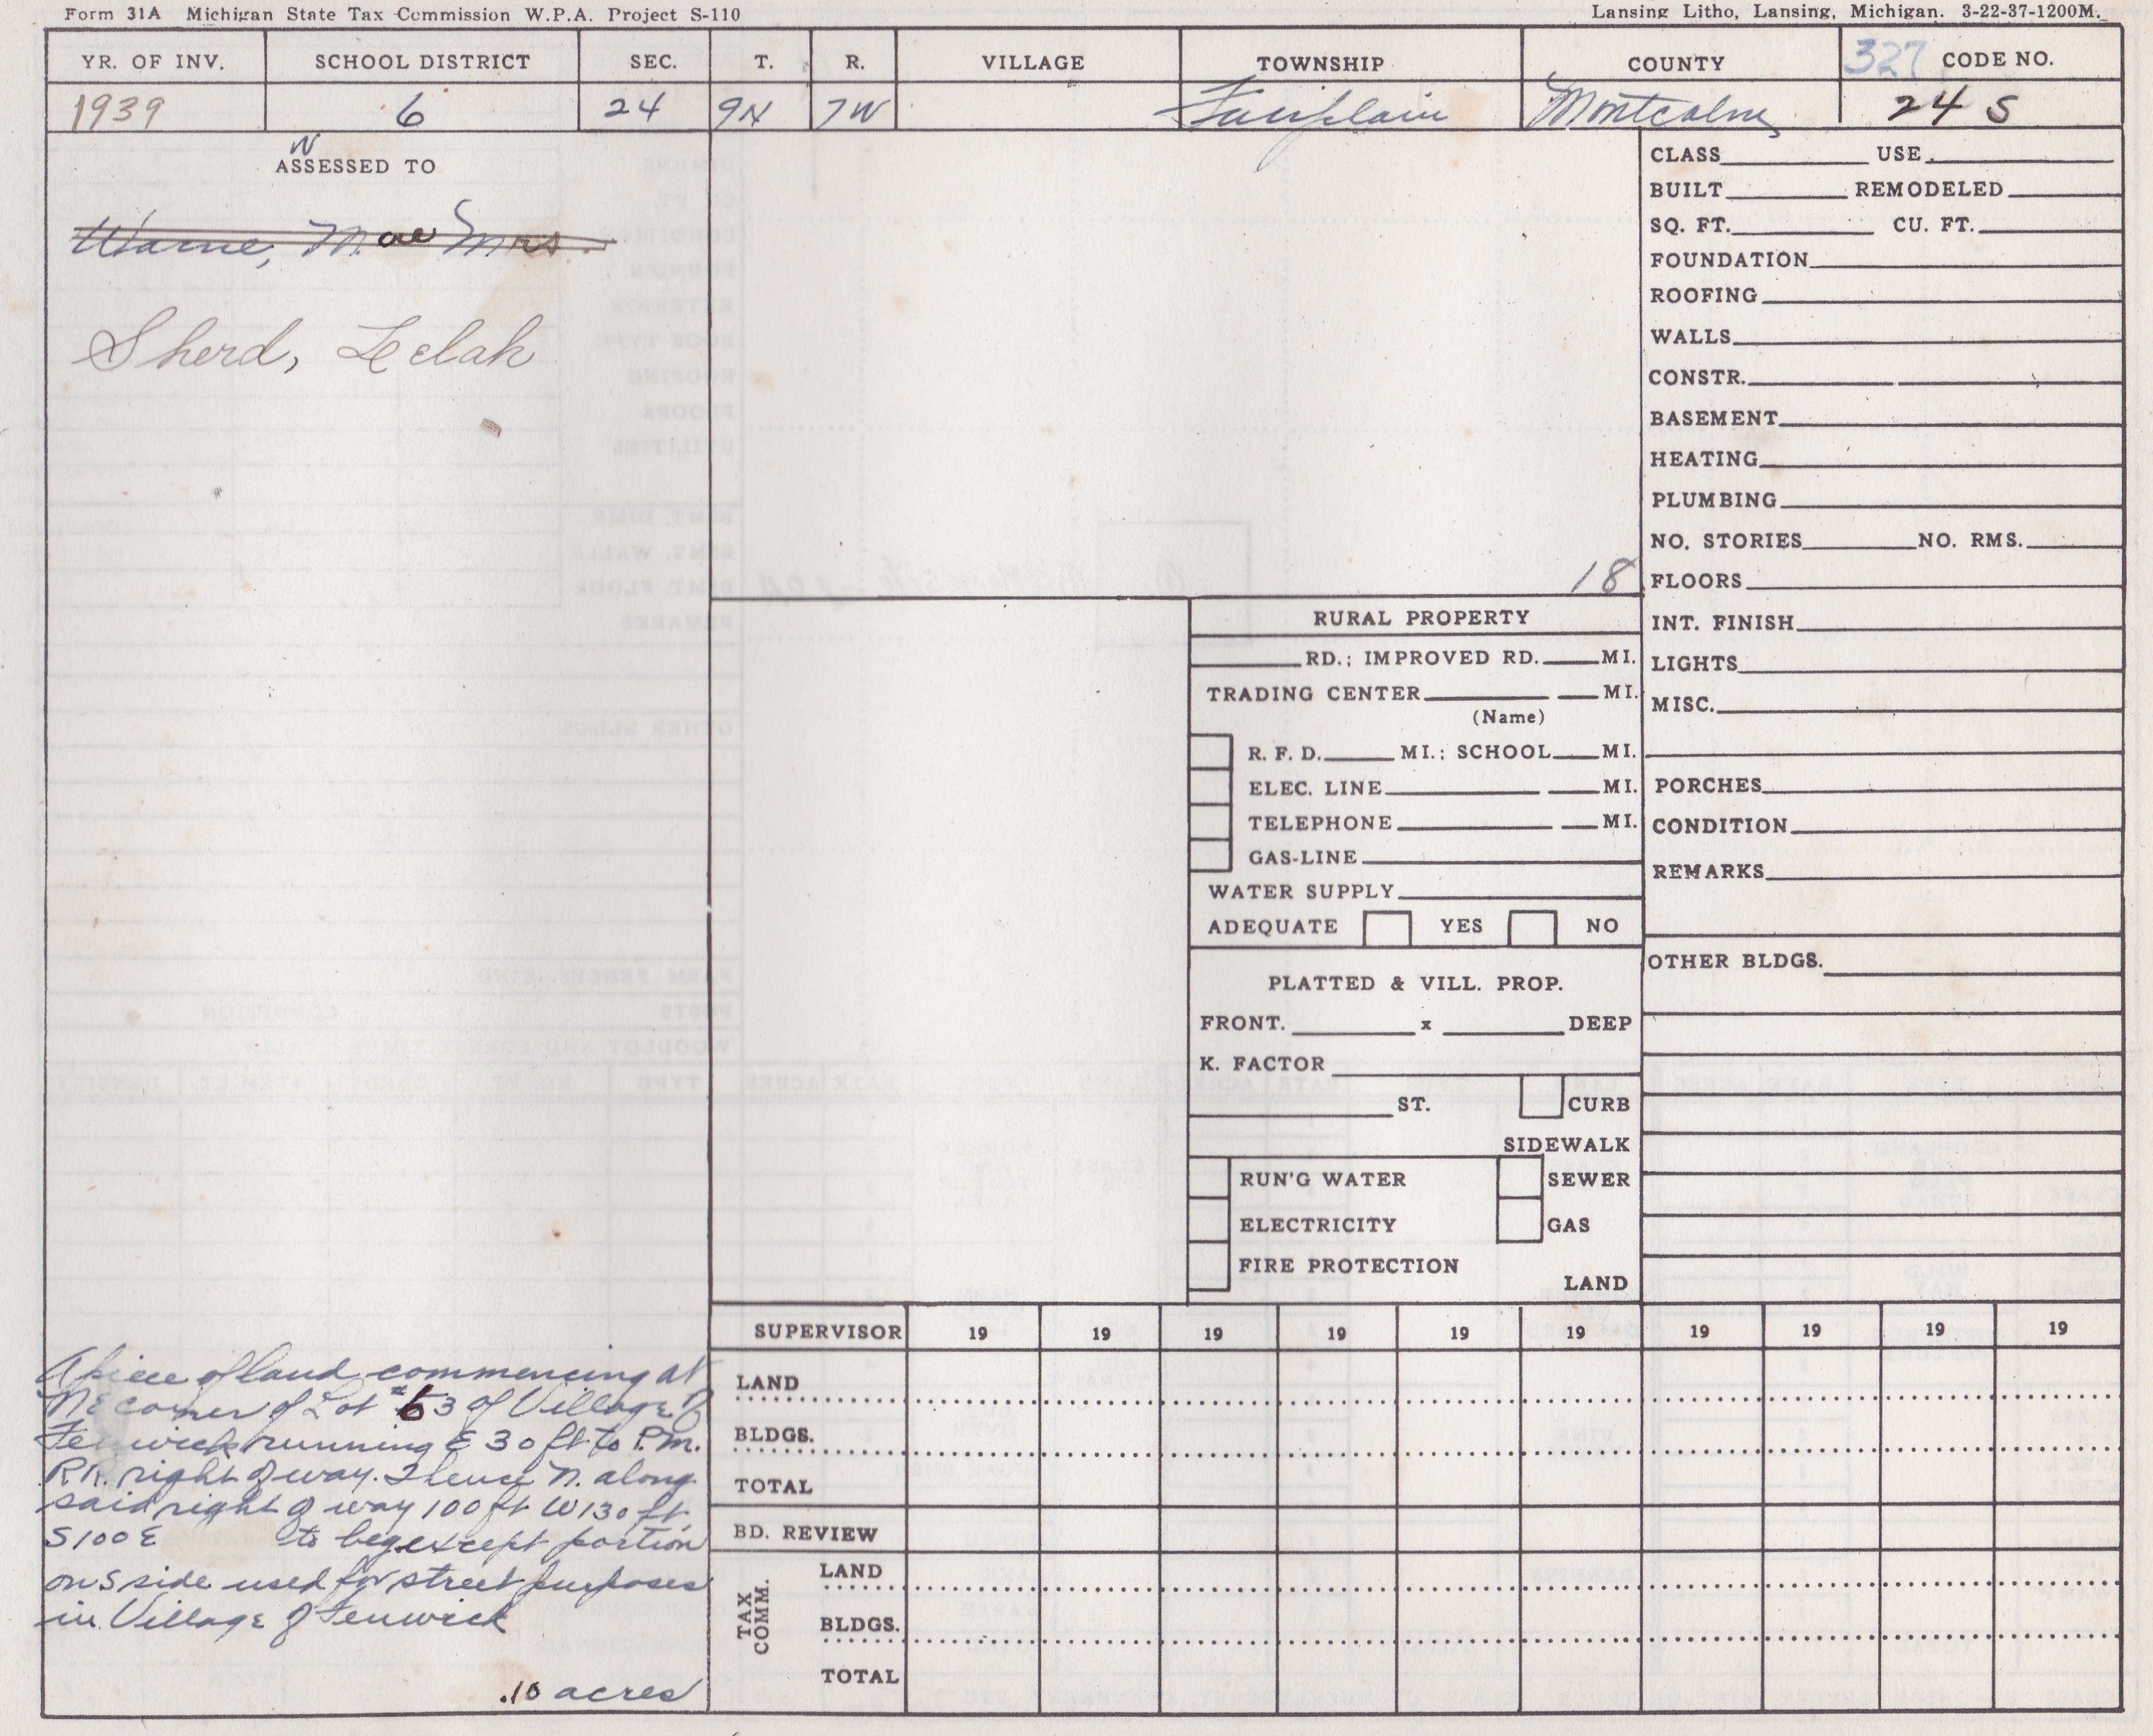 Form 31A Michigan State Tax Commission W.P.A. Project S-110
Lansing Litho, Lansing, Michigan. 3-22-37-1200M.
YR. OF INV. SCHOOL DISTRICT SEC. T. R. VILLAGE TOWNSHIP COUNTY 327 CODE NO.
1939 6 24 9N 7W Fairplain Montcalm 24 S
N
ASSESSED TO
Warne, Mae Mrs.
Sherd, Lelah
A piece of land commencing at
NE corner of Lot #63 of Village of
Fenwick running E 30 ft to P.M.
R.R. right of way. Thence N. along
said right of way 100 ft W 130 ft.
S 100 E to beg. except portion
on S side used for street purposes
in Village of Fenwick
.10 acres
18
RURAL PROPERTY
RD.; IMPROVED RD. MI.
TRADING CENTER MI.
(Name)
R. F. D. MI.; SCHOOL MI.
ELEC. LINE MI.
TELEPHONE MI.
GAS-LINE
WATER SUPPLY
ADEQUATE YES NO
PLATTED & VILL. PROP.
FRONT. x DEEP
K. FACTOR
ST. CURB
SIDEWALK
RUN'G WATER SEWER
ELECTRICITY GAS
FIRE PROTECTION
LAND
CLASS USE
BUILT REMODELED
SQ. FT. CU. FT.
FOUNDATION
ROOFING
WALLS
CONSTR.
BASEMENT
HEATING
PLUMBING
NO. STORIES NO. RMS.
FLOORS
INT. FINISH
LIGHTS
MISC.
PORCHES
CONDITION
REMARKS
OTHER BLDGS.
SUPERVISOR 19 19 19 19 19 19 19 19 19 19
LAND
BLDGS.
TOTAL
BD. REVIEW
TAX COMM.
LAND
BLDGS.
TOTAL